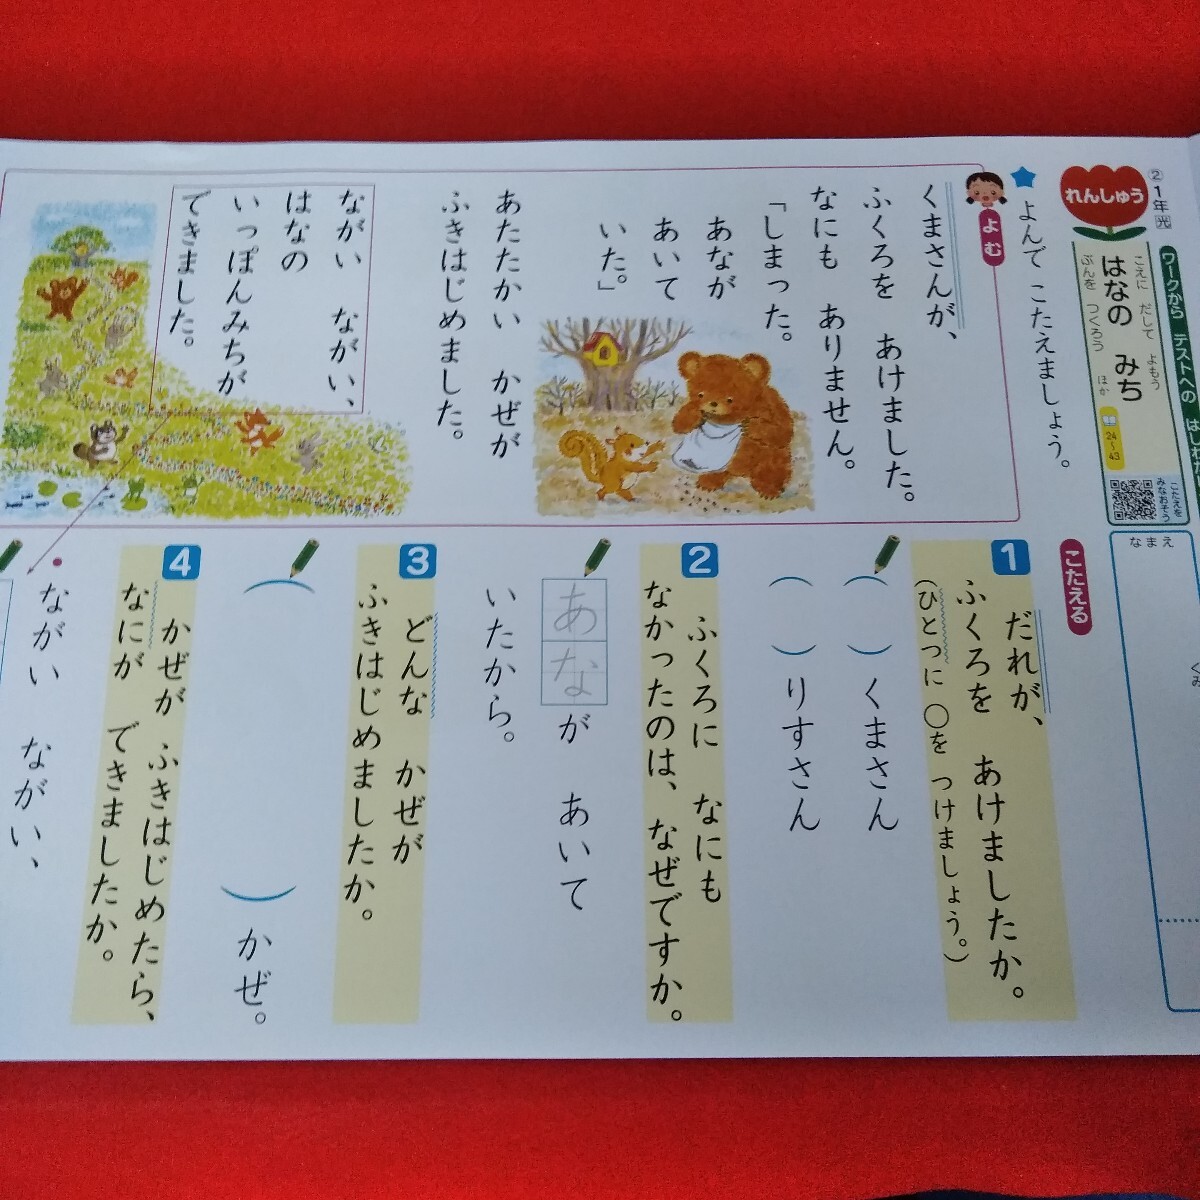 ②1年光
れんしゅう
ワークから テストへの
こえに だして よもう
はなの みち
ぶんを つくろう ほか
24〜43
こたえを
みなおそう
なまえ
よんで こたえましょう。
よむ
くまさんが、
ふくろを あけました。
なにも ありません。
「しまった。
あなが
あいて
いた。」
あたたかい かぜが
ふきはじめました。
ながい ながい、
はなの
いっぽんみちが
できました。
こたえる
1
だれが、
ふくろを あけましたか。
(ひとつに ○を つけましょう。)
( )くまさん
( )りすさん
2
ふくろに なにも
なかったのは、なぜですか。
あなが あいて
いたから。
3
どんな かぜが
ふきはじめましたか。
( )かぜ。
4
かぜが ふきはじめたら、
なにが できましたか。
ながい ながい、